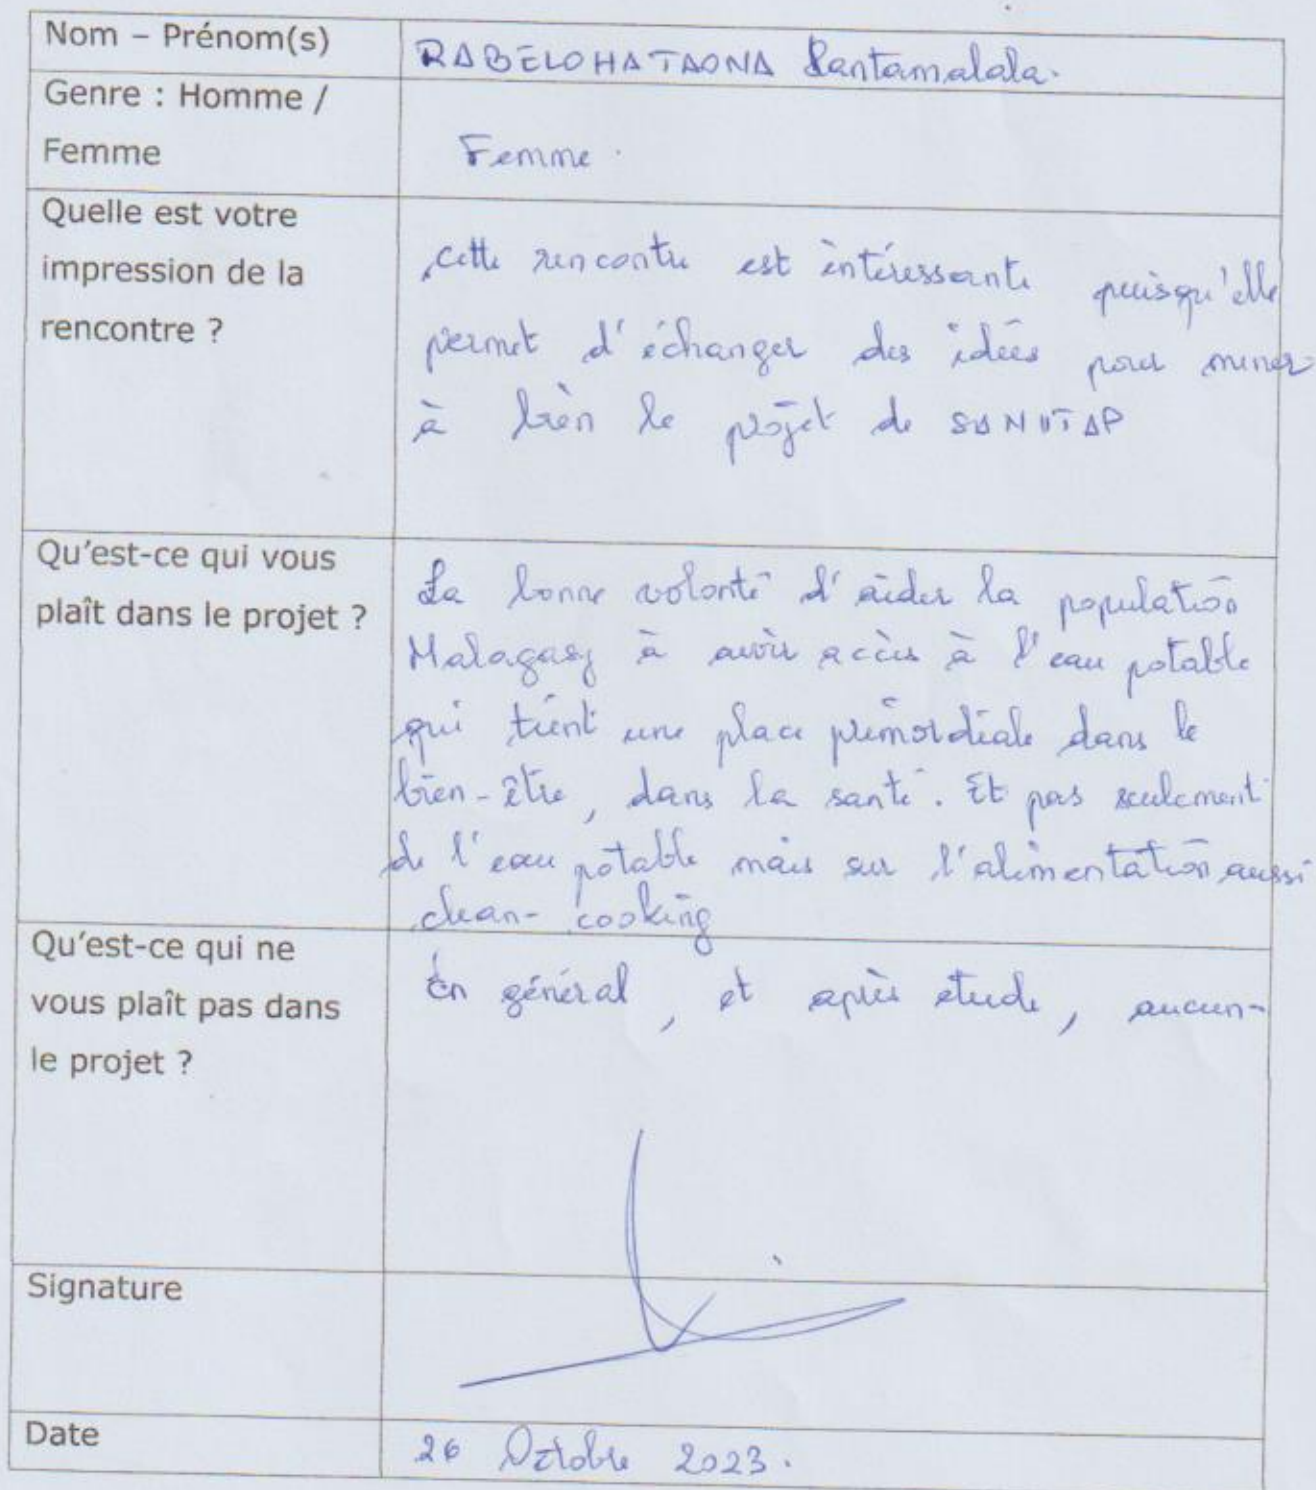 Nom – Prénom(s)
RABELOHATAONA Lantomalala.
Genre : Homme /
Femme
Femme.
Quelle est votre
impression de la
rencontre ?
cette rencontre est intéressante puisqu'elle
permet d'échanger des idées pour mener
à bien le projet de SANITAP
Qu'est-ce qui vous
plaît dans le projet ?
La bonne volonté d'aider la population
Malagasy à avoir accès à l'eau potable
qui tient une place primordiale dans le
bien-être, dans la santé. Et pas seulement
de l'eau potable mais sur l'alimentation aussi
clean-cooking
Qu'est-ce qui ne
vous plaît pas dans
le projet ?
En général, et après étude, aucun-
Signature
Date
26 Octobre 2023.